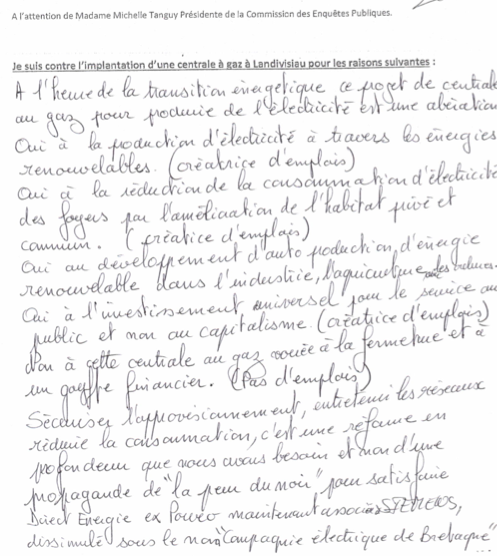 A l'attention de Madame Michelle Tanguy Présidente de la Commission des Enquêtes Publiques.
Je suis contre l'implantation d'une centrale à gaz à Landivisiau pour les raisons suivantes :
A l'heure de la transition énergétique ce projet de centrale
au gaz pour produire de l'électricité est une abération
Oui à la production d'électricité à travers les énergies
renouvelables. (créatrice d'emplois)
Oui à la réduction de la consommation d'électricité
des foyers par l'amélioration de l'habitat privé et
commun. (créatice d'emplois)
Oui au développement d'auto production, d'énergie
renouvelable dans l'industrie, l'agriculture
Oui à l'investissement universel pour le service au
public et non au capitalisme. (créatrice d'emplois)
Non à cette centrale au gaz vouée à la fermeture et à
un gouffre financier. (Pas d'emplois)
Sécuriser l'approvisionnement, entretenir les réseaux
réduire la consommation, c'est une réforme en
profondeur que nous avons besoin et non d'une
propagande de "la peur du noir" pour satisfaire
Direct Energie ex Poweo maintenant associé SIEMENS,
dissimulé sous le nom "Compagnie électrique de Bretagne"